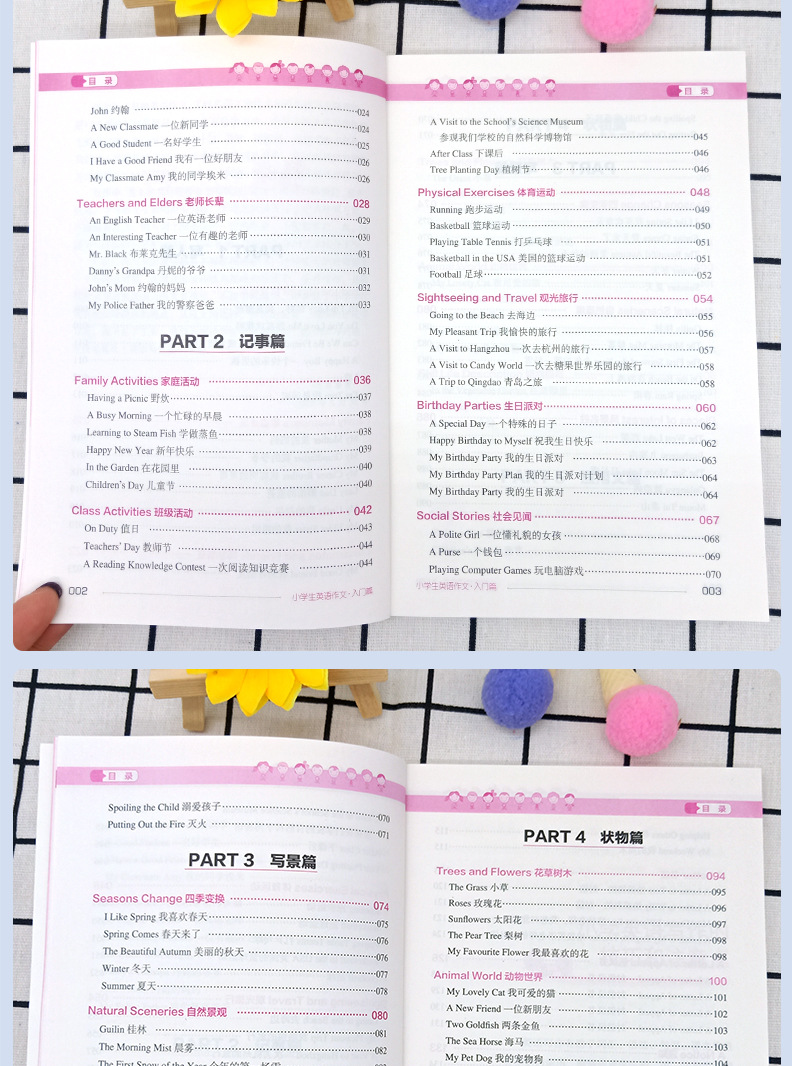 目 录
John 约翰 024
A New Classmate 一位新同学 024
A Good Student 一名好学生 025
I Have a Good Friend 我有一位好朋友 026
My Classmate Amy 我的同学埃米 026
Teachers and Elders 老师长辈 028
An English Teacher 一位英语老师 029
An Interesting Teacher 一位有趣的老师 030
Mr. Black 布莱克先生 031
Danny's Grandpa 丹妮的爷爷 031
John's Mom 约翰的妈妈 032
My Police Father 我的警察爸爸 033
PART 2 记事篇
Family Activities 家庭活动 036
Having a Picnic 野炊 037
A Busy Morning 一个忙碌的早晨 038
Learning to Steam Fish 学做蒸鱼 038
Happy New Year 新年快乐 039
In the Garden 在花园里 040
Children's Day 儿童节 040
Class Activities 班级活动 042
On Duty 值日 043
Teachers' Day 教师节 044
A Reading Knowledge Contest 一次阅读知识竞赛 044
002
小学生英语作文·入门篇
目 录
A Visit to the School's Science Museum
参观我们学校的自然科学博物馆 045
After Class 下课后 046
Tree Planting Day 植树节 046
Physical Exercises 体育运动 048
Running 跑步运动 049
Basketball 篮球运动 050
Playing Table Tennis 打乒乓球 051
Basketball in the USA 美国的篮球运动 051
Football 足球 052
Sightseeing and Travel 观光旅行 054
Going to the Beach 去海边 055
My Pleasant Trip 我愉快的旅行 056
A Visit to Hangzhou 一次去杭州的旅行 057
A Visit to Candy World 一次去糖果世界乐园的旅行 058
A Trip to Qingdao 青岛之旅 058
Birthday Parties 生日派对 060
A Special Day 一个特殊的日子 062
Happy Birthday to Myself 祝我生日快乐 062
My Birthday Party 我的生日派对 063
My Birthday Party Plan 我的生日派对计划 064
My Birthday Party 我的生日派对 064
Social Stories 社会见闻 067
A Polite Girl 一位懂礼貌的女孩 068
A Purse 一个钱包 069
Playing Computer Games 玩电脑游戏 070
小学生英语作文·入门篇
003
目 录
Spoiling the Child 溺爱孩子 070
Putting Out the Fire 灭火 071
PART 3 写景篇
Seasons Change 四季变换 074
I Like Spring 我喜欢春天 075
Spring Comes 春天来了 076
The Beautiful Autumn 美丽的秋天 076
Winter 冬天 077
Summer 夏天 078
Natural Sceneries 自然景观 080
Guilin 桂林 081
The Morning Mist 晨雾 082
The First Snow of the Year
目 录
PART 4 状物篇
Trees and Flowers 花草树木 094
The Grass 小草 095
Roses 玫瑰花 096
Sunflowers 太阳花 097
The Pear Tree 梨树 098
My Favourite Flower 我最喜欢的花 098
Animal World 动物世界 100
My Lovely Cat 我可爱的猫 101
A New Friend 一位新朋友 102
Two Goldfish 两条金鱼 103
The Sea Horse 海马 103
My Pet Dog 我的宠物狗 104